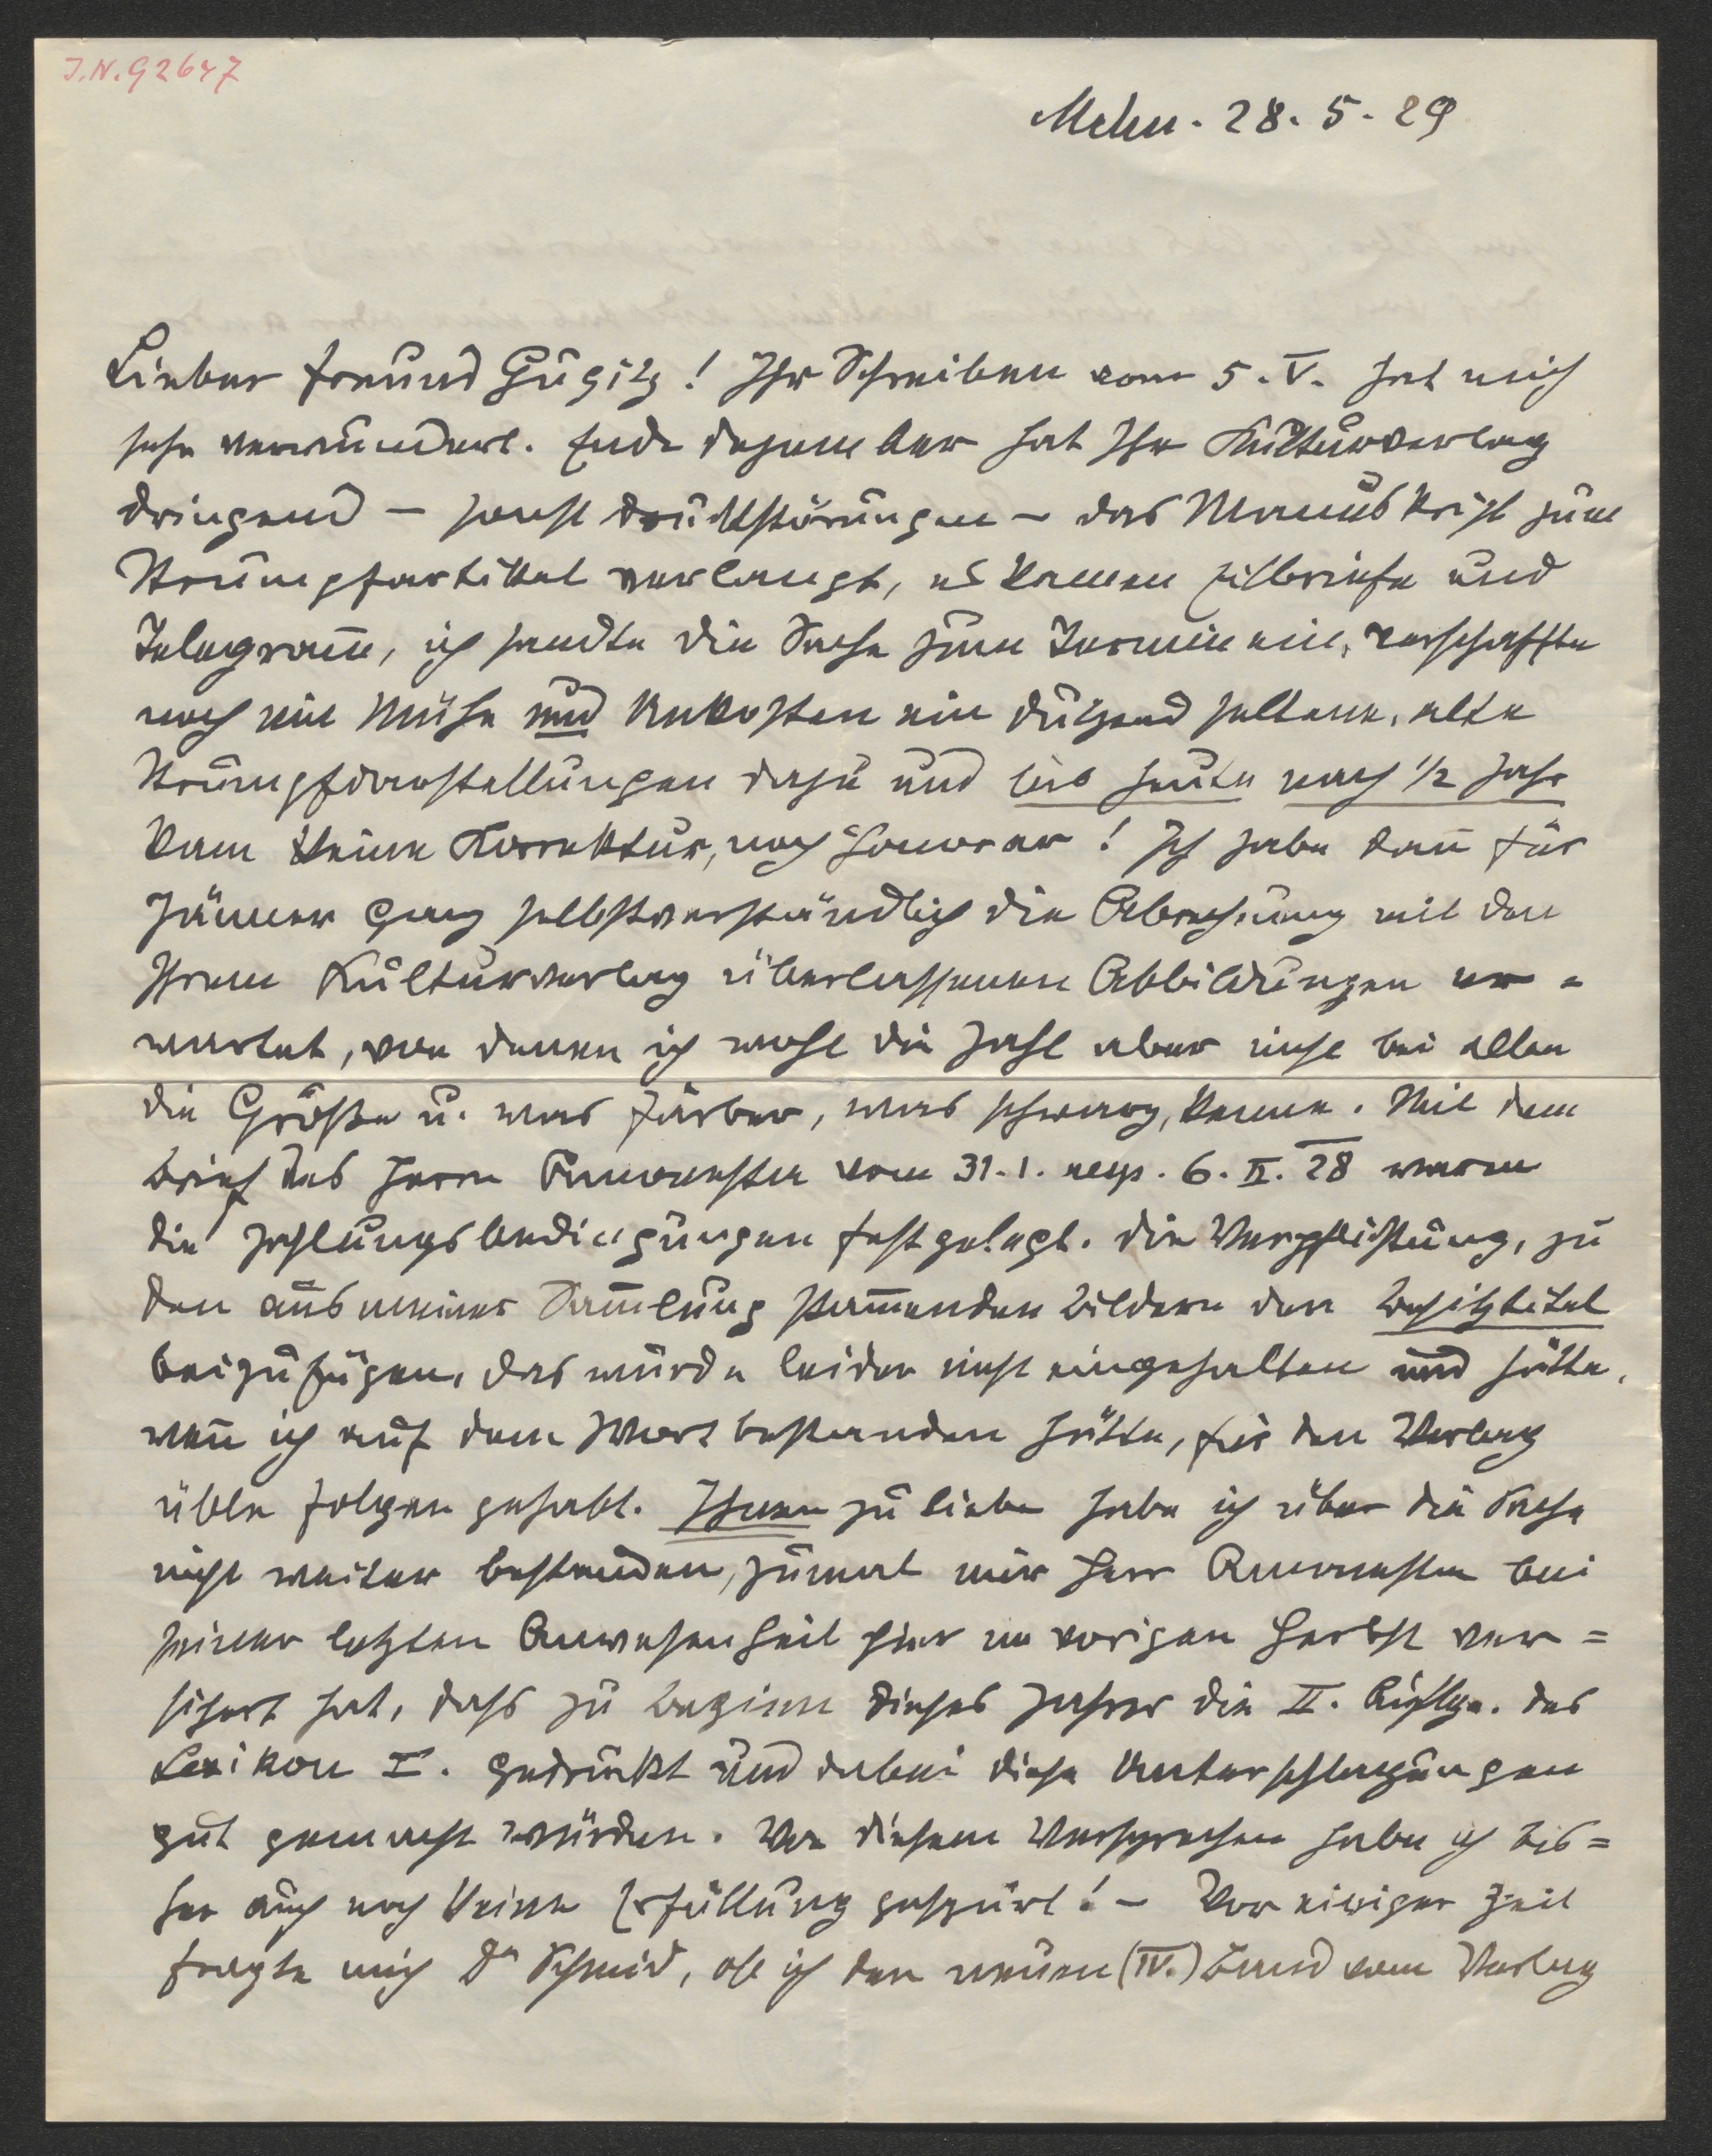 J.N. 92647
Mchn. 28. 5. 29
Lieber Freund Gugitz! Ihr Schreiben vom 5. V. hat mich
sehr verwundert. Ende Dezember hat Ihr Kulturverlag
dringend – sonst Druckstörungen – das Manuskript zum
Strumpfartikel verlangt, es kamen Eilbriefe und
Telegram̄, ich sandte die Sache zum Termin ein, verschaffte
noch mit Mühe und Unkosten ein Dutzend seltene, alte
Strumpfdarstellungen dazu und bis heute nach 1/2 Jahr
kam keine Korrektur, noch Honorar! Ich habe dan̄ für
Jänner ganz selbstverständlich die Abrechnung mit den
Ihrem Kulturverlag überlassenen Abbildungen er=
wartet, von denen ich wohl die Zahl aber nicht bei allen
die Größe u. was färber, was schwarz, kenne. Mit dem
Brief des Herrn vom 31. 1. resp. 6. II. 28 waren
die Zahlungsbedingungen festgelegt. Die Verpflichtung, zu
den aus meiner Sam̄lung stam̄enden Bildern den Besitztitel
beizufügen, das wurde leider nicht eingehalten und hätte,
wen̄ ich auf dem Wort bestanden hätte, für den Verlag
üble Folgen gehabt. Ihnen zu liebe habe ich über die Sache
nicht weiter bestanden, zumal mir Herr bei
seiner letzten Anwesenheit hier im vorigen Herbst ver=
sichert hat, dass zu Beginn dieses Jahres die II. Auflge. des
Lexikon I. gedruckt und dabei diese Unterschlagungen
gut gemacht würden. Von diesem Versprechen habe ich bis=
her auch noch keine Erfüllung gespürt! – Vor einiger Zeit
fragte mich Dr Schmid, ob ich den neuen (IV.) Band vom Verlag